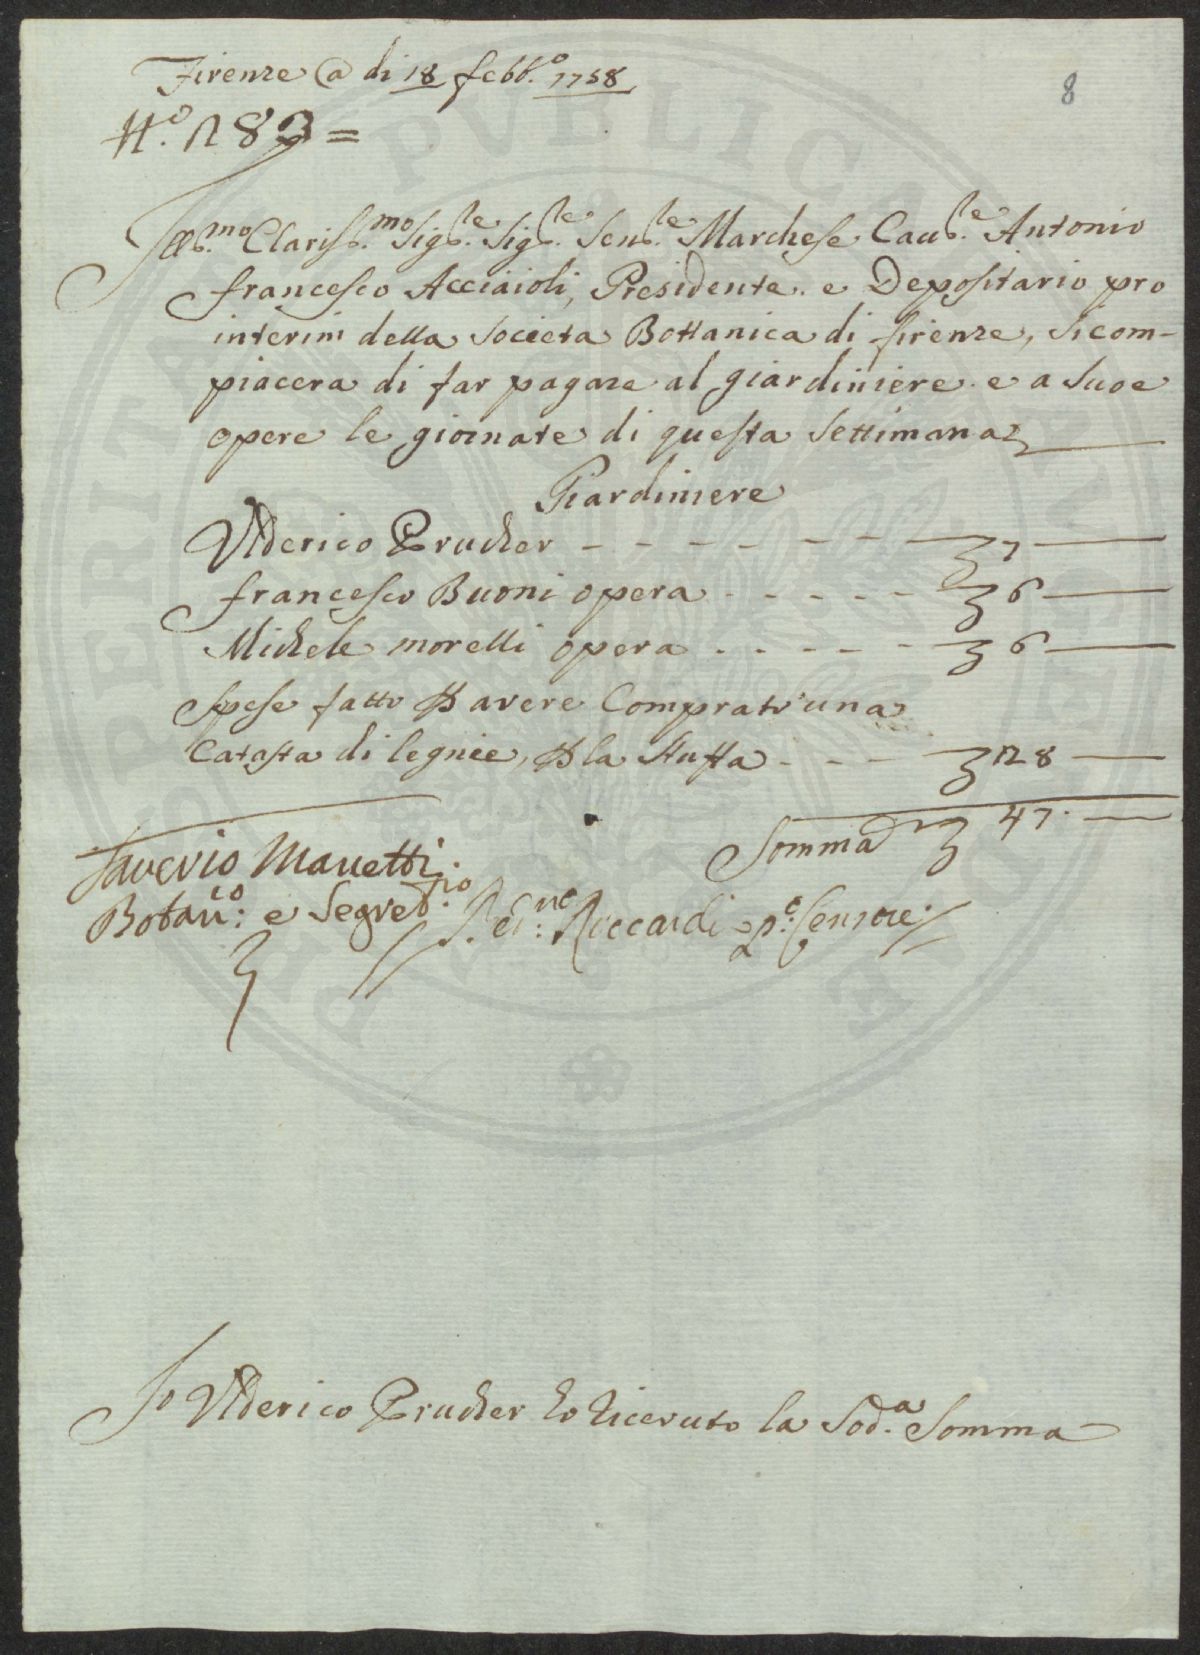 Firenze @ di 18 febb.o 1758
8
N.o 283 =
Ill.mo Clariss.mo Sig.re Sig.re Sen.re Marchese Cau.re Antonio
francesco Acciaioli, Presidente e Depositario pro
interim della Societa Bottanica di firenze, si com-
piacera di far pagare al giardiniere e a Suoe
opere le giornate di questa Settimana
Giardiniere
Vlderico Prucker - - - - - - - 7
francesco Buoni opera - - - - - 6
Michele morelli opera - - - - - 6
Spese fatto p avere Comprato una
Catasta di legnie, p la stuffa - - - 28
Somma 47.
Saverio Manetti
Botan.co: e Segret.rio
Riccardi p.e Censore
Io Vlderico Prucker ho riceuuto la Sod.a Somma